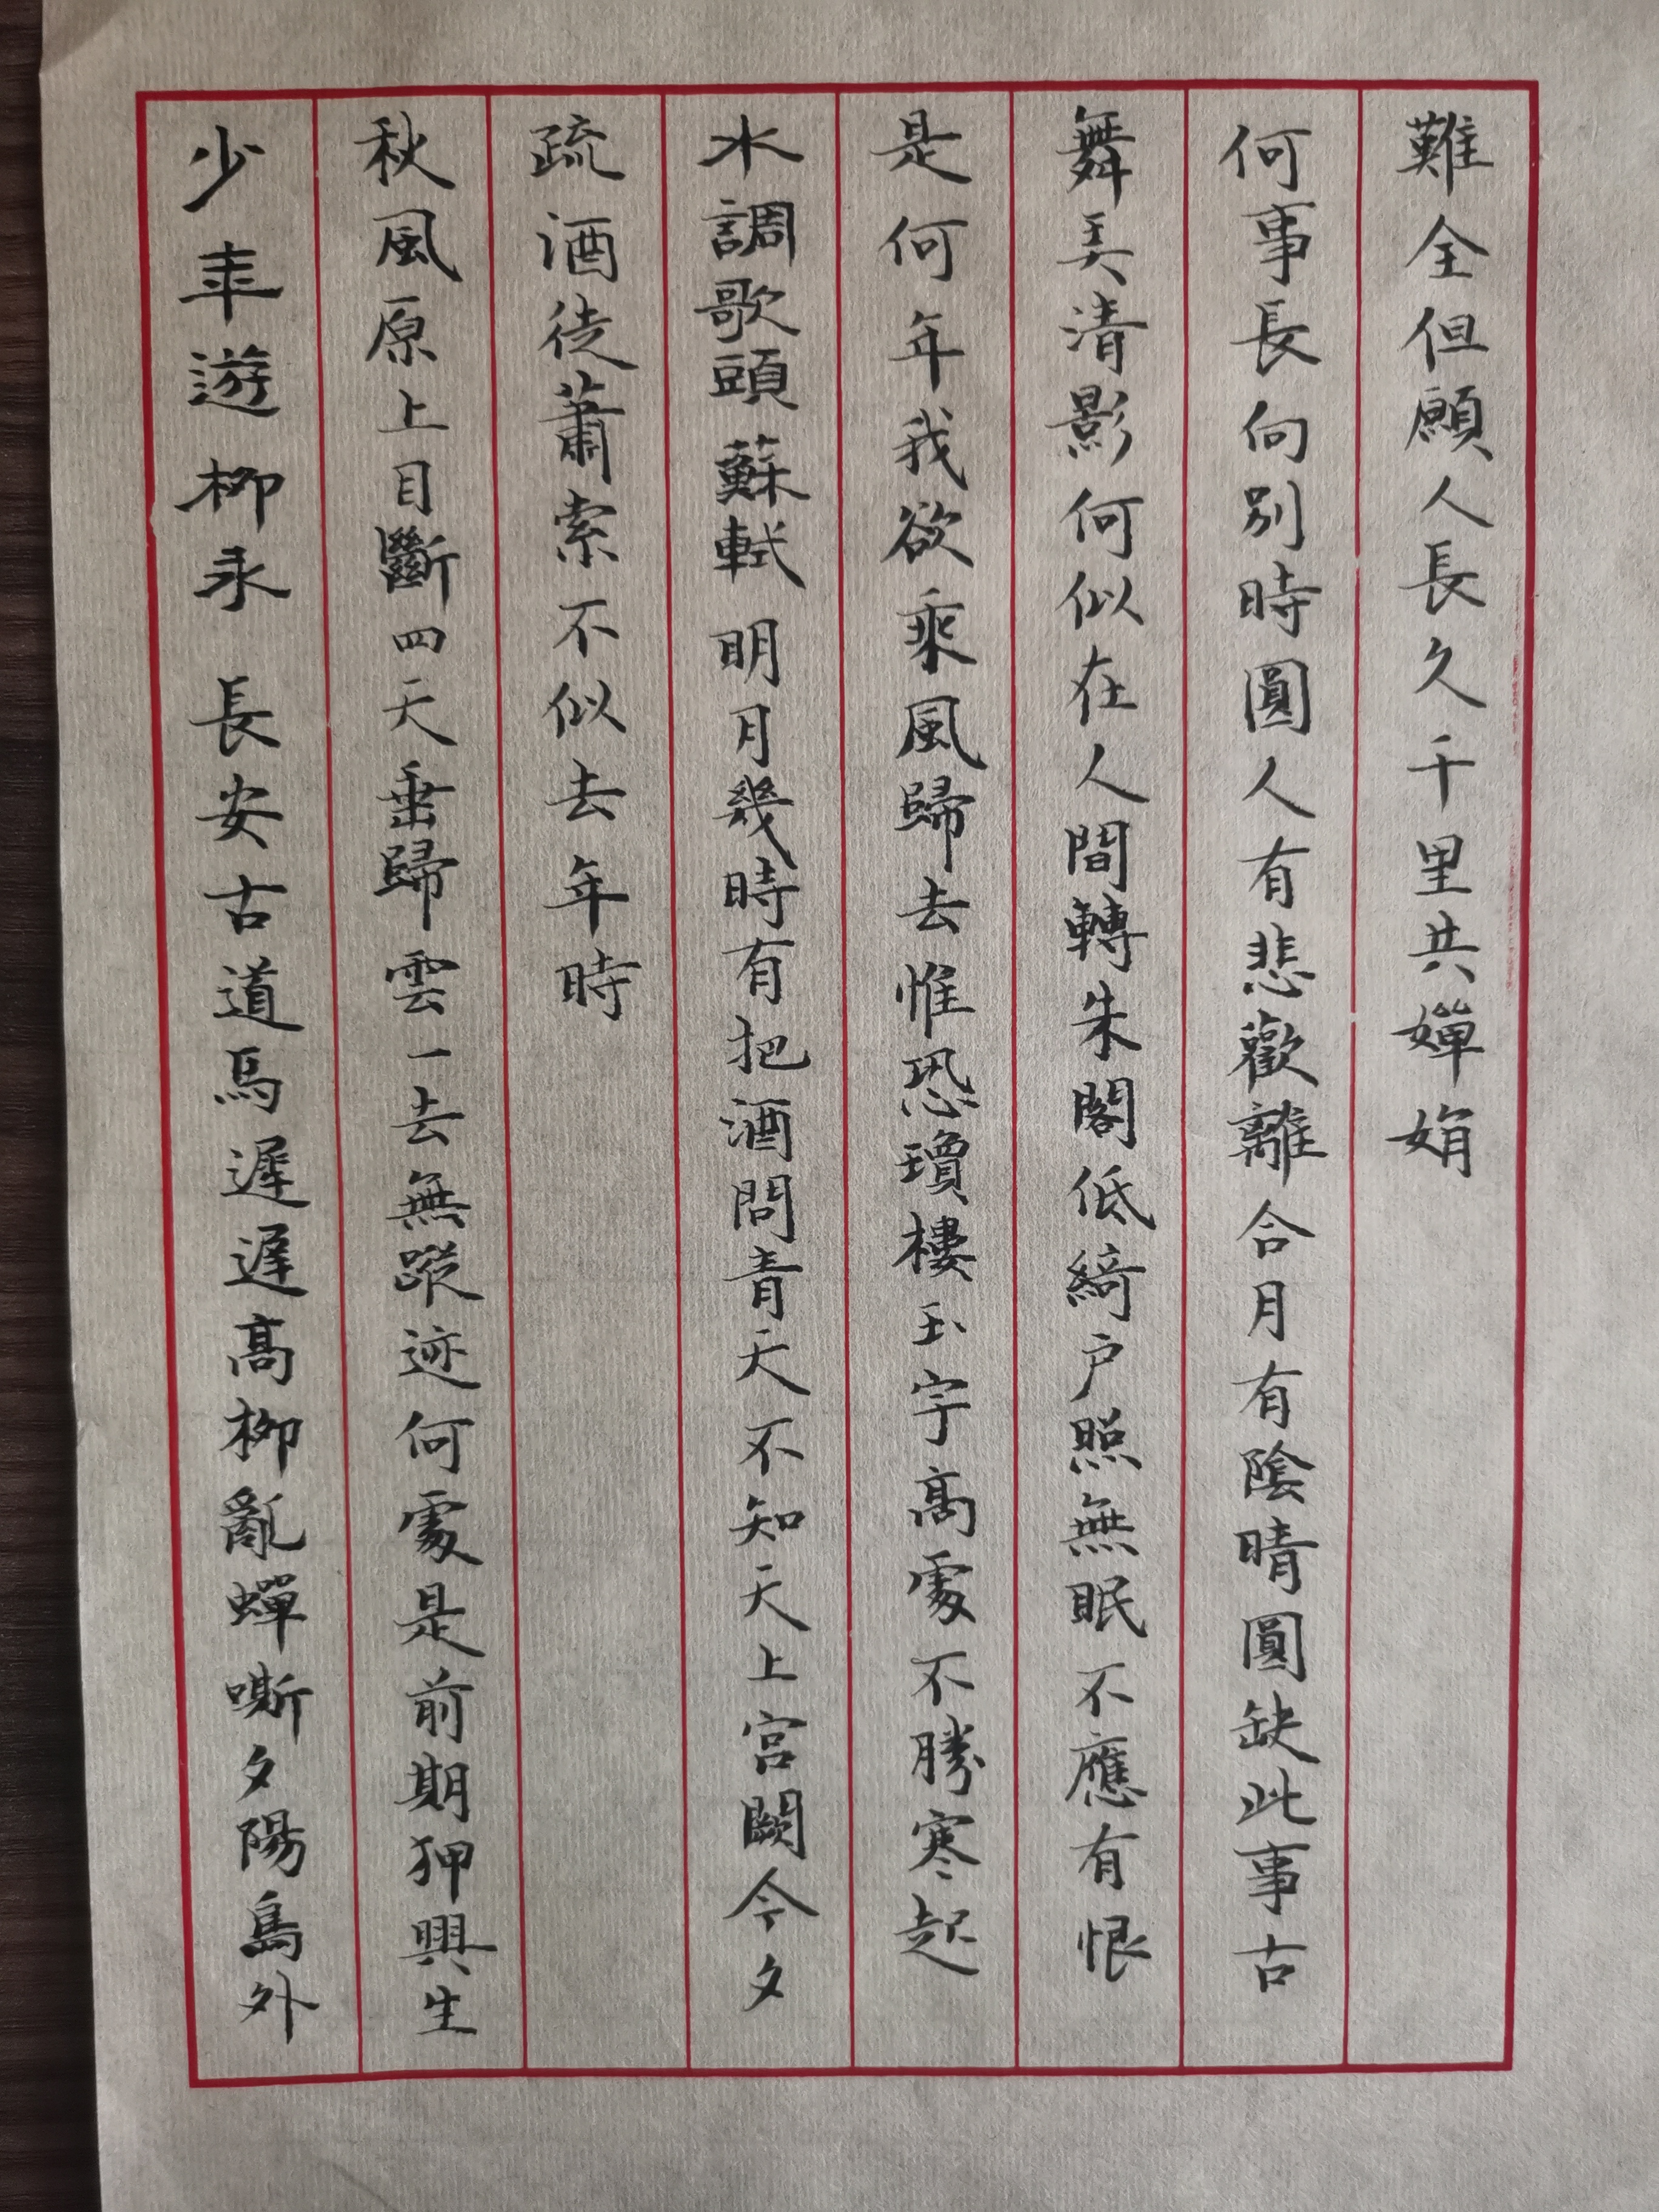 少年遊 柳永 長安古道馬遲遲高柳亂蟬嘶夕陽島外
秋風原上目斷四天垂歸雲一去無蹤迹何處是前期狎興生
疏酒徒蕭索不似去年時
水調歌頭 蘇軾 明月幾時有把酒問青天不知天上宮闕今夕
是何年我欲乘風歸去惟恐瓊樓玉宇高處不勝寒起
舞弄清影何似在人間轉朱閣低綺户照無眠不應有恨
何事長向別時圓人有悲歡離合月有陰晴圓缺此事古
難全但願人長久千里共嬋娟